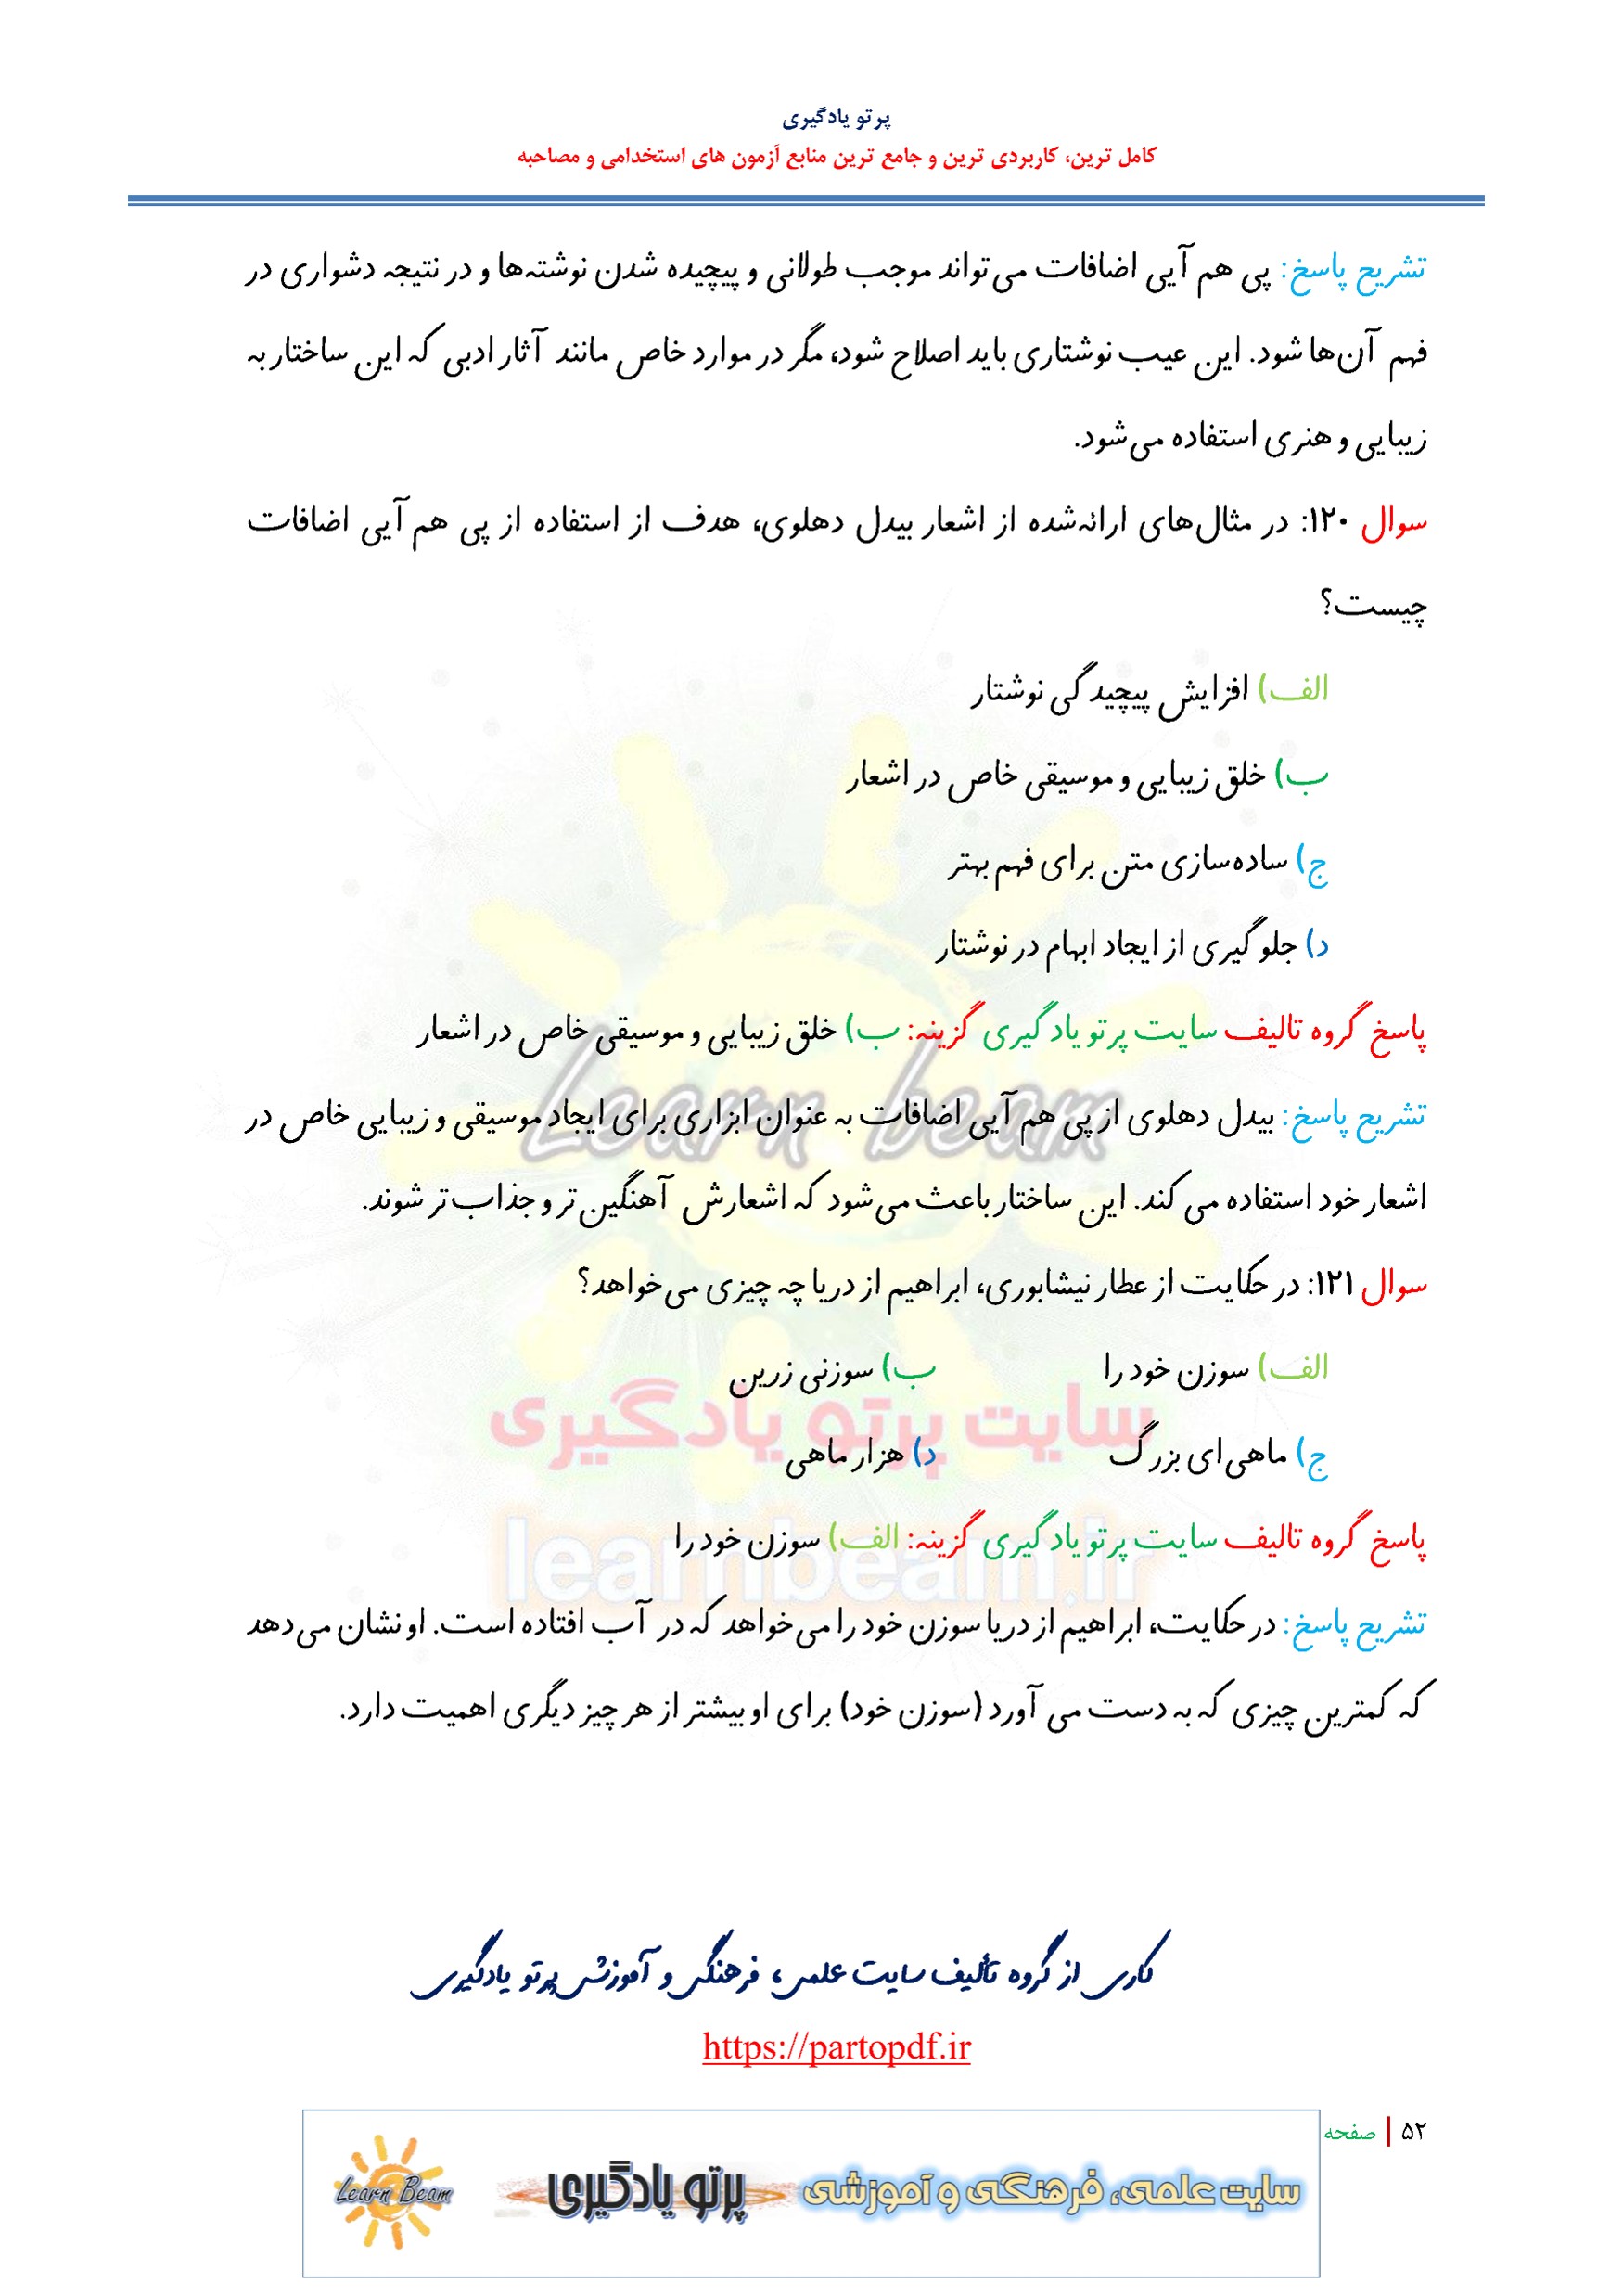 پرتو یادگیری
کامل ترین، کاربردی ترین و جامع ترین منابع آزمون های استخدامی و مصاحبه
تشریح پاسخ: پی هم آیی اضافات می‌تواند موجب طولانی و پیچیده شدن نوشته‌ها و در نتیجه دشواری در
فهم آن‌ها شود. این عیب نوشتاری باید اصلاح شود، مگر در موارد خاص مانند آثار ادبی که این ساختار به
زیبایی و هنری استفاده می‌شود.
سوال ۱۲۰: در مثال‌های ارائه‌شده از اشعار بیدل دهلوی، هدف از استفاده از پی هم آیی اضافات
چیست؟
الف) افزایش پیچیدگی نوشتار
ب) خلق زیبایی و موسیقی خاص در اشعار
ج) ساده‌سازی متن برای فهم بهتر
د) جلوگیری از ایجاد ابهام در نوشتار
پاسخ گروه تالیف سایت پرتو یادگیری گزینه: ب) خلق زیبایی و موسیقی خاص در اشعار
Learn beam
تشریح پاسخ: بیدل دهلوی از پی هم آیی اضافات به عنوان ابزاری برای ایجاد موسیقی و زیبایی خاص در
اشعار خود استفاده می کند. این ساختار باعث می‌شود که اشعارش آهنگین تر و جذاب تر شوند.
سوال ۱۲۱: در حکایت از عطار نیشابوری، ابراهیم از دریا چه چیزی می‌خواهد؟
الف) سوزن خود را ب) سوزنی زرین
سایت پرتو یادگیری
ج) ماهی‌ای بزرگ د) هزار ماهی
پاسخ گروه تالیف سایت پرتو یادگیری گزینه: الف) سوزن خود را
learnbeam.ir
تشریح پاسخ: در حکایت، ابراهیم از دریا سوزن خود را می‌خواهد که در آب افتاده است. او نشان می‌دهد
که کمترین چیزی که به دست می آورد (سوزن خود) برای او بیشتر از هر چیز دیگری اهمیت دارد.
کاری از گروه تألیف سایت علمی، فرهنگی و آموزشی پرتو یادگیری
https://partopdf.ir
۵۲ | صفحه
سایت علمی، فرهنگی و آموزشی پرتو یادگیری Learn Beam